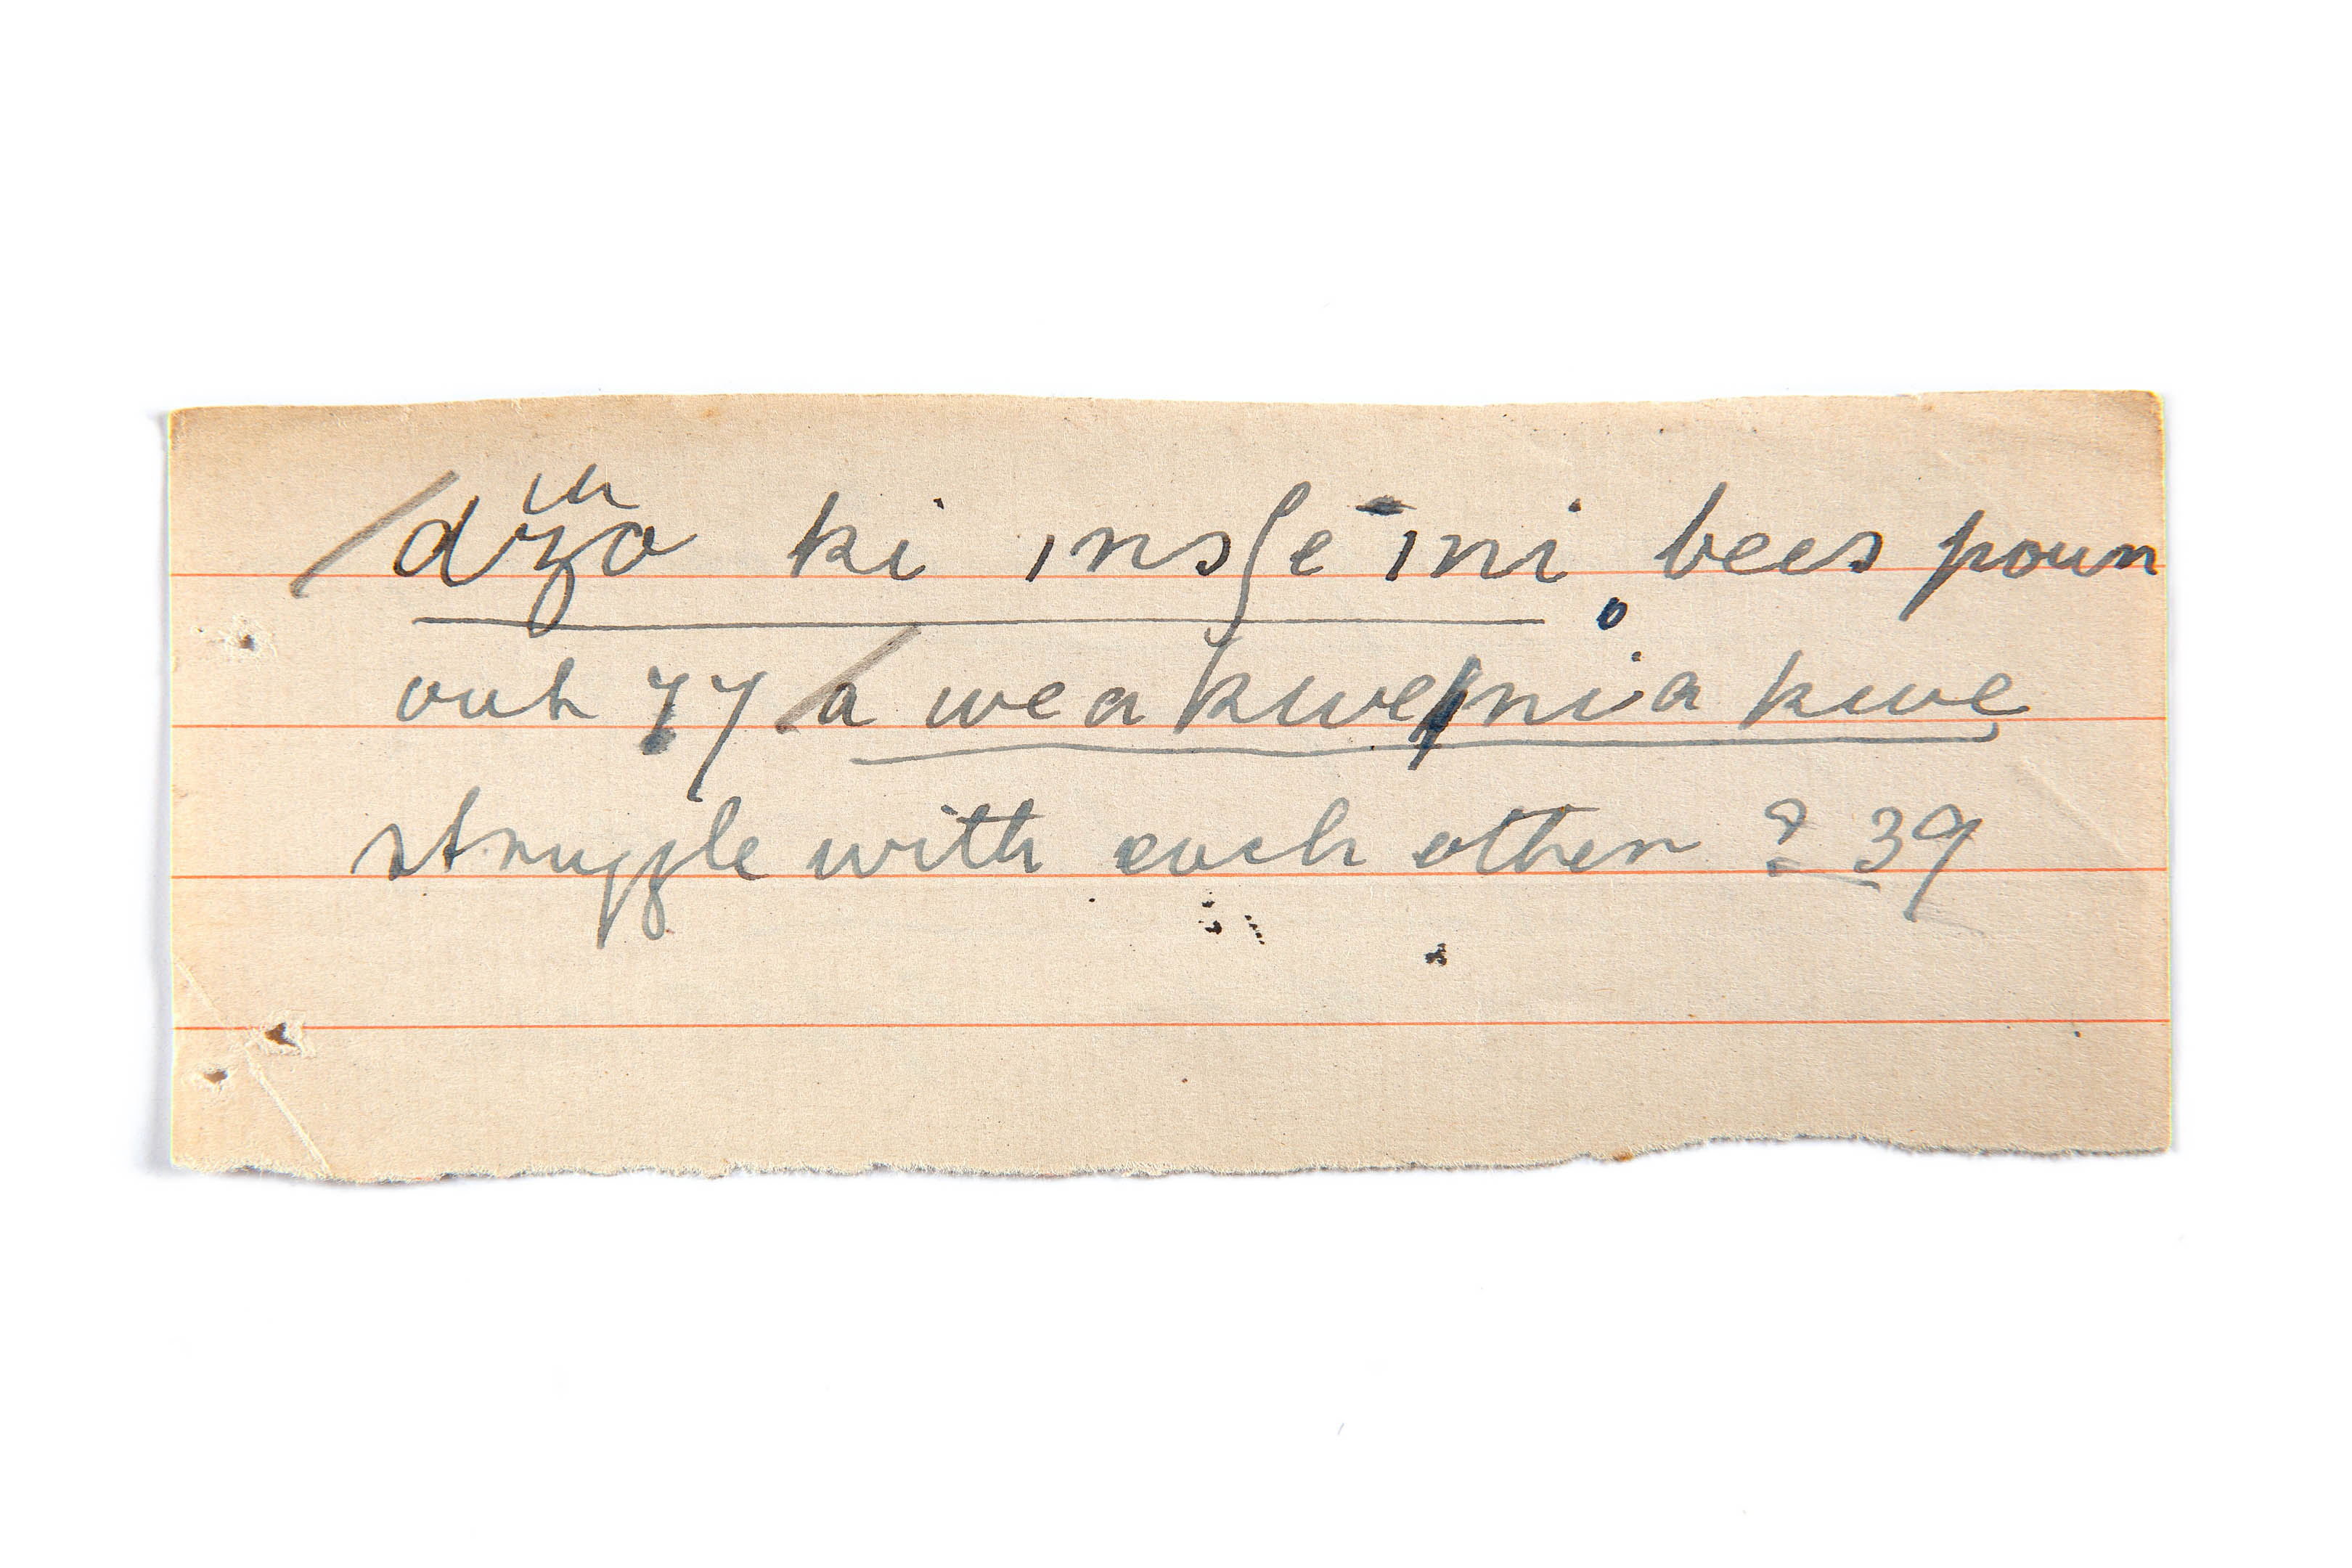 /džo ki ınsʃe ını bees poun
out 77 /a weakwe/nia kwe
struggle with each other ? 39